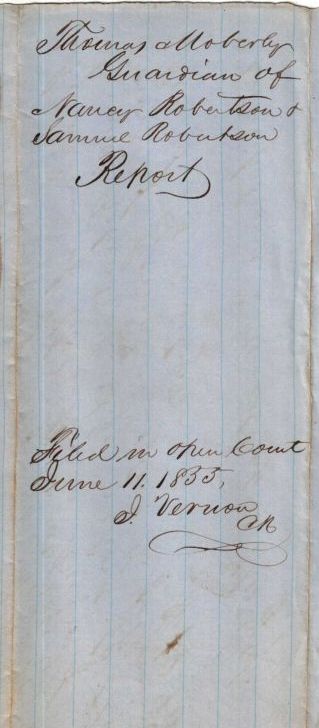 Thomas Moberly
Guardian of
Nancy Robertson &
Samuel Robertson
Report
Filed in open Court
June 11. 1855,
J. Vernon
Clk